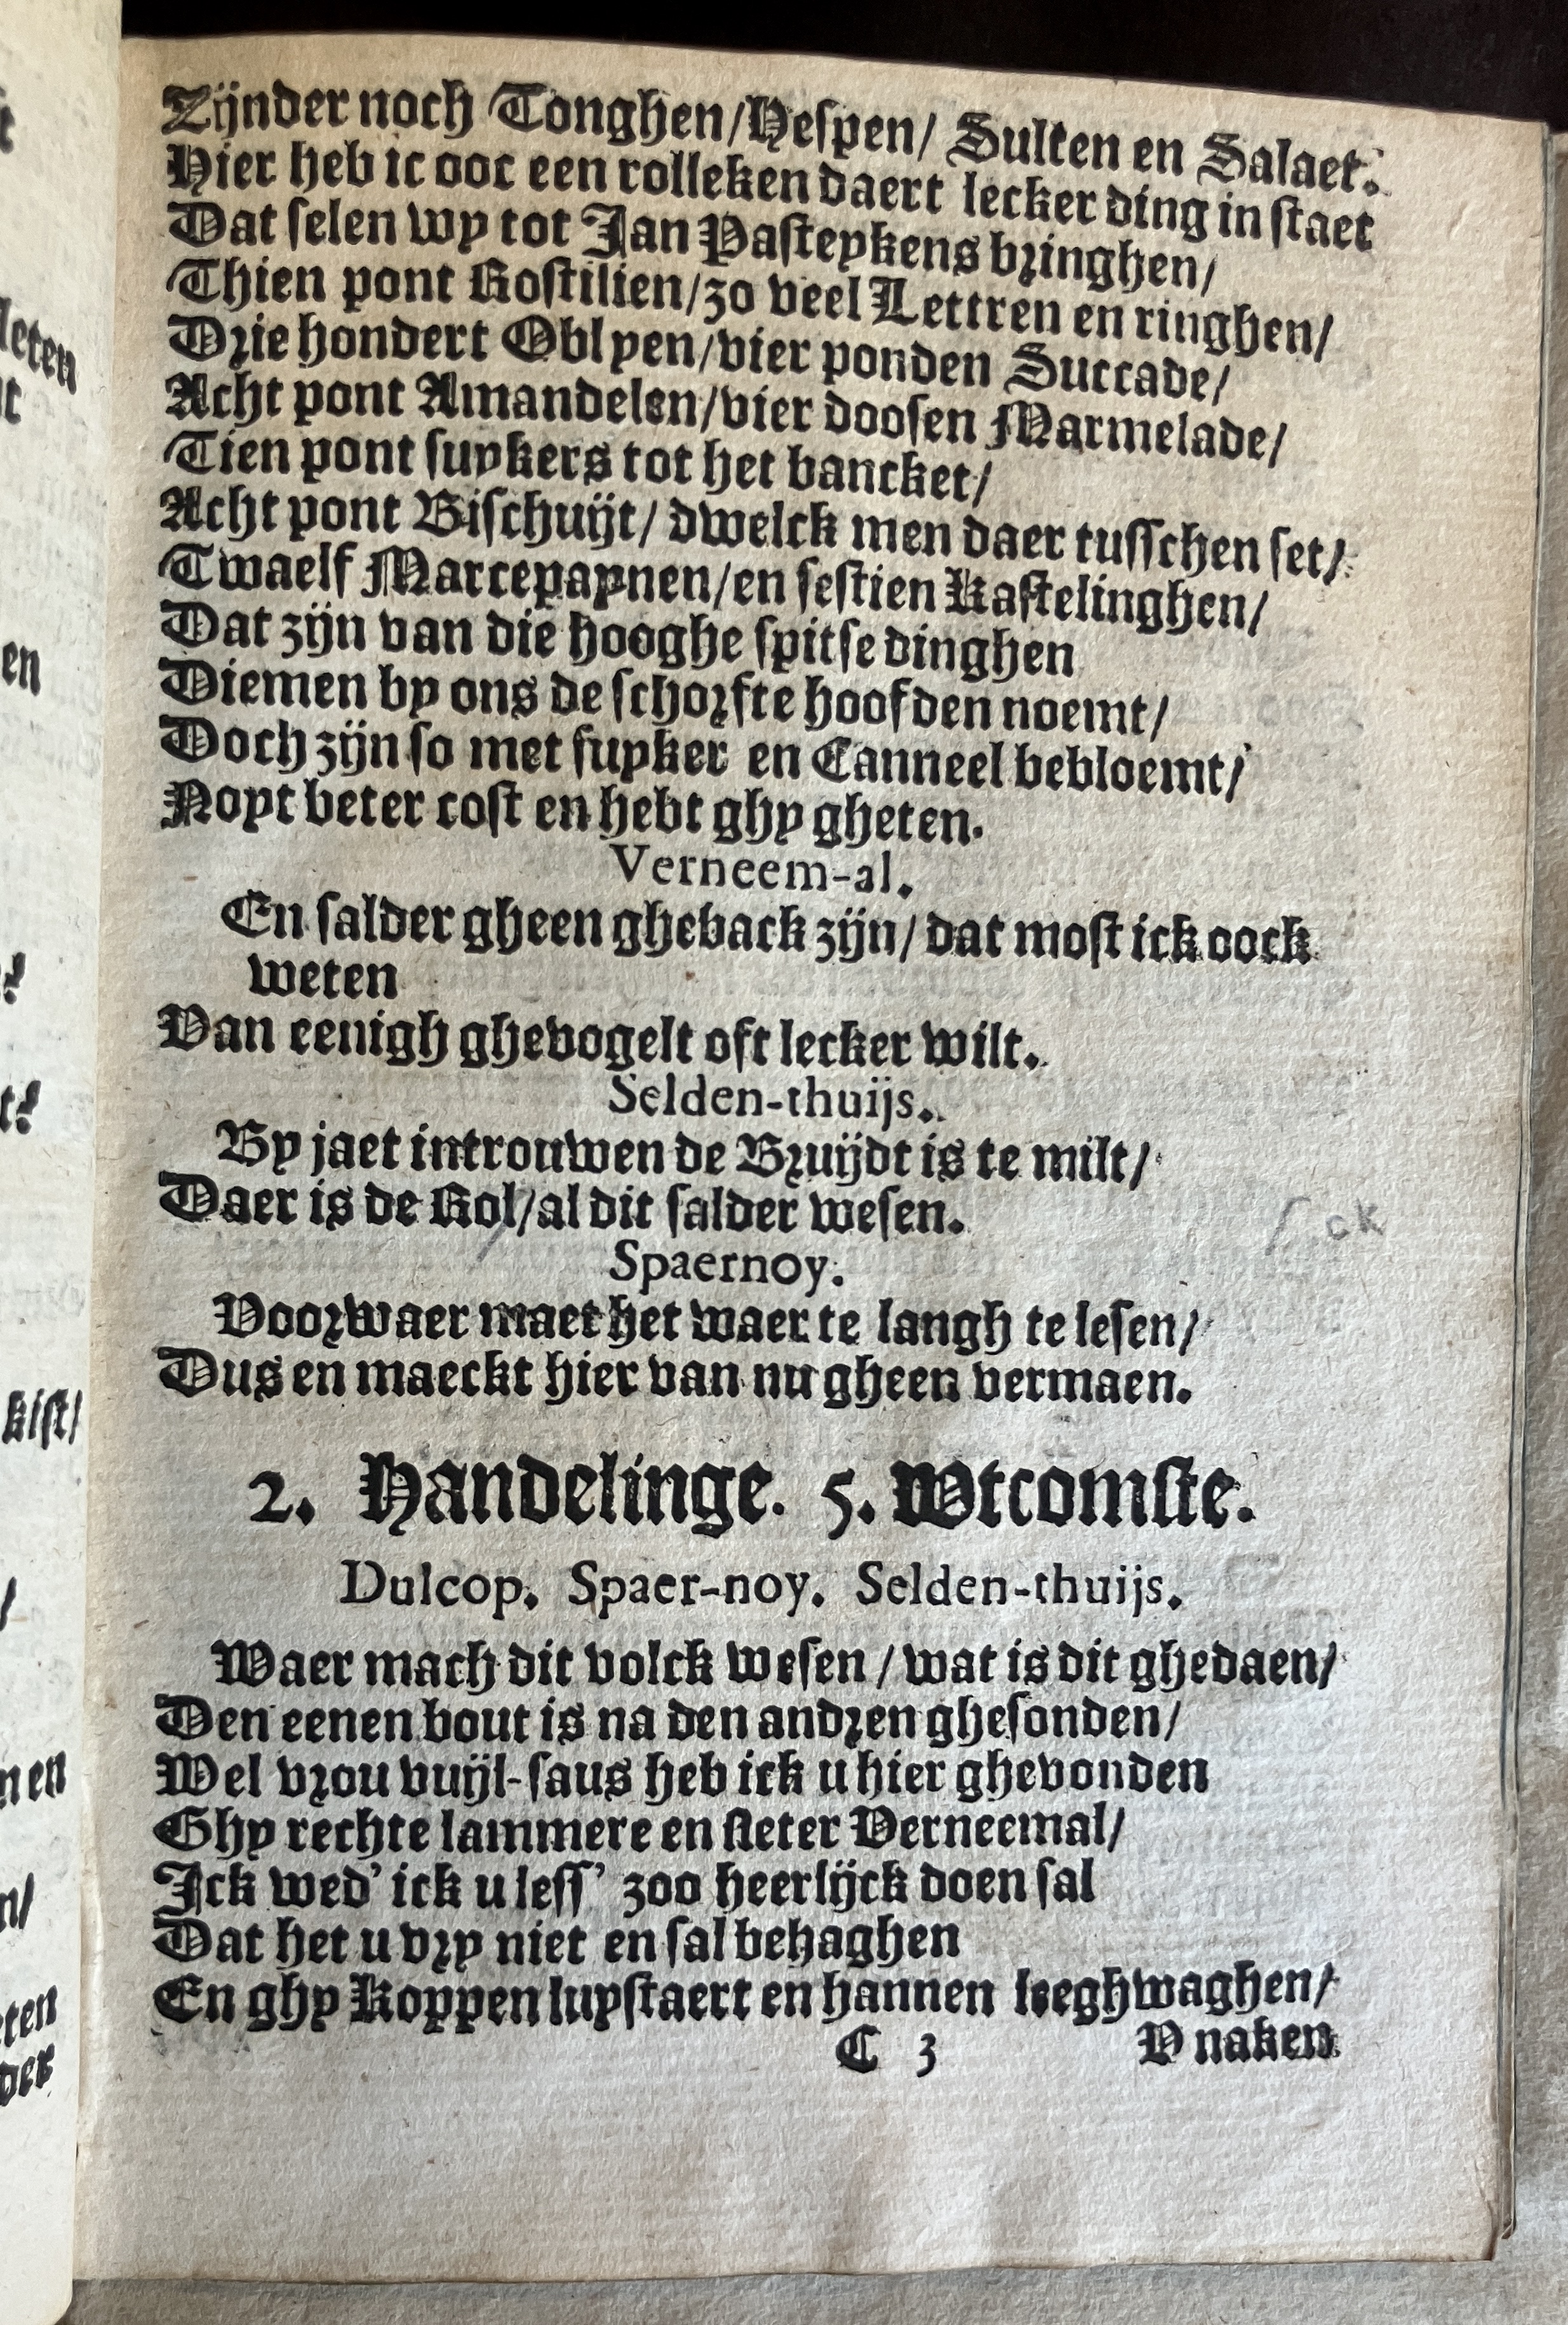 Zijnder noch Tonghen/Hespen/ Sulten en Salaet.
Hier heb ic ooc een rolleken daert lecker ding in staet
Dat selen wy tot Jan Pasteykens bringhen/
Thien pont Rostilien/zo veel Lettren en ringhen/
Drie hondert Oblyen/vier ponden Succade/
Acht pont Amandelen/vier doosen Marmelade/
Tien pont suykers tot het bancket/
Acht pont Bischuijt/ dwelck men daer tusschen set/
Twaelf Marcepaynen/en sestien Rastelinghen/
Dat zijn van die hooghe spitse dinghen
Diemen by ons de schorfte hoofden noemt/
Doch zijn so met suyker en Canneel bebloemt/
Noyt beter cost en hebt ghy gheten.
Verneem-al.
En salder gheen gheback zijn/ dat most ick oock
weten
Van eenigh ghevogelt oft lecker wilt.
Selden-thuijs.
By jaet introuwen de Bruijdt is te milt/
Daer is de Rol/al dit salder wesen.
Spaernoy.
Voorwaer maet het waer te langh te lesen/
Dus en maeckt hier van nu gheen vermaen.
2. Handelinge. 5. Wtcomste.
Dulcop. Spaer-noy. Selden-thuijs.
Waer mach dit volck wesen / wat is dit ghedaen/
Den eenen bout is na den andren ghesonden/
Wel vrou vuijl-saus heb ick u hier ghevonden
Ghy rechte lammere en sleter Verneemal/
Ick wed' ick u less' zoo heerlijck doen sal
Dat het u vry niet en sal behaghen
En ghy Koppen luystaert en hannen leeghwaghen/
C 3 V naken